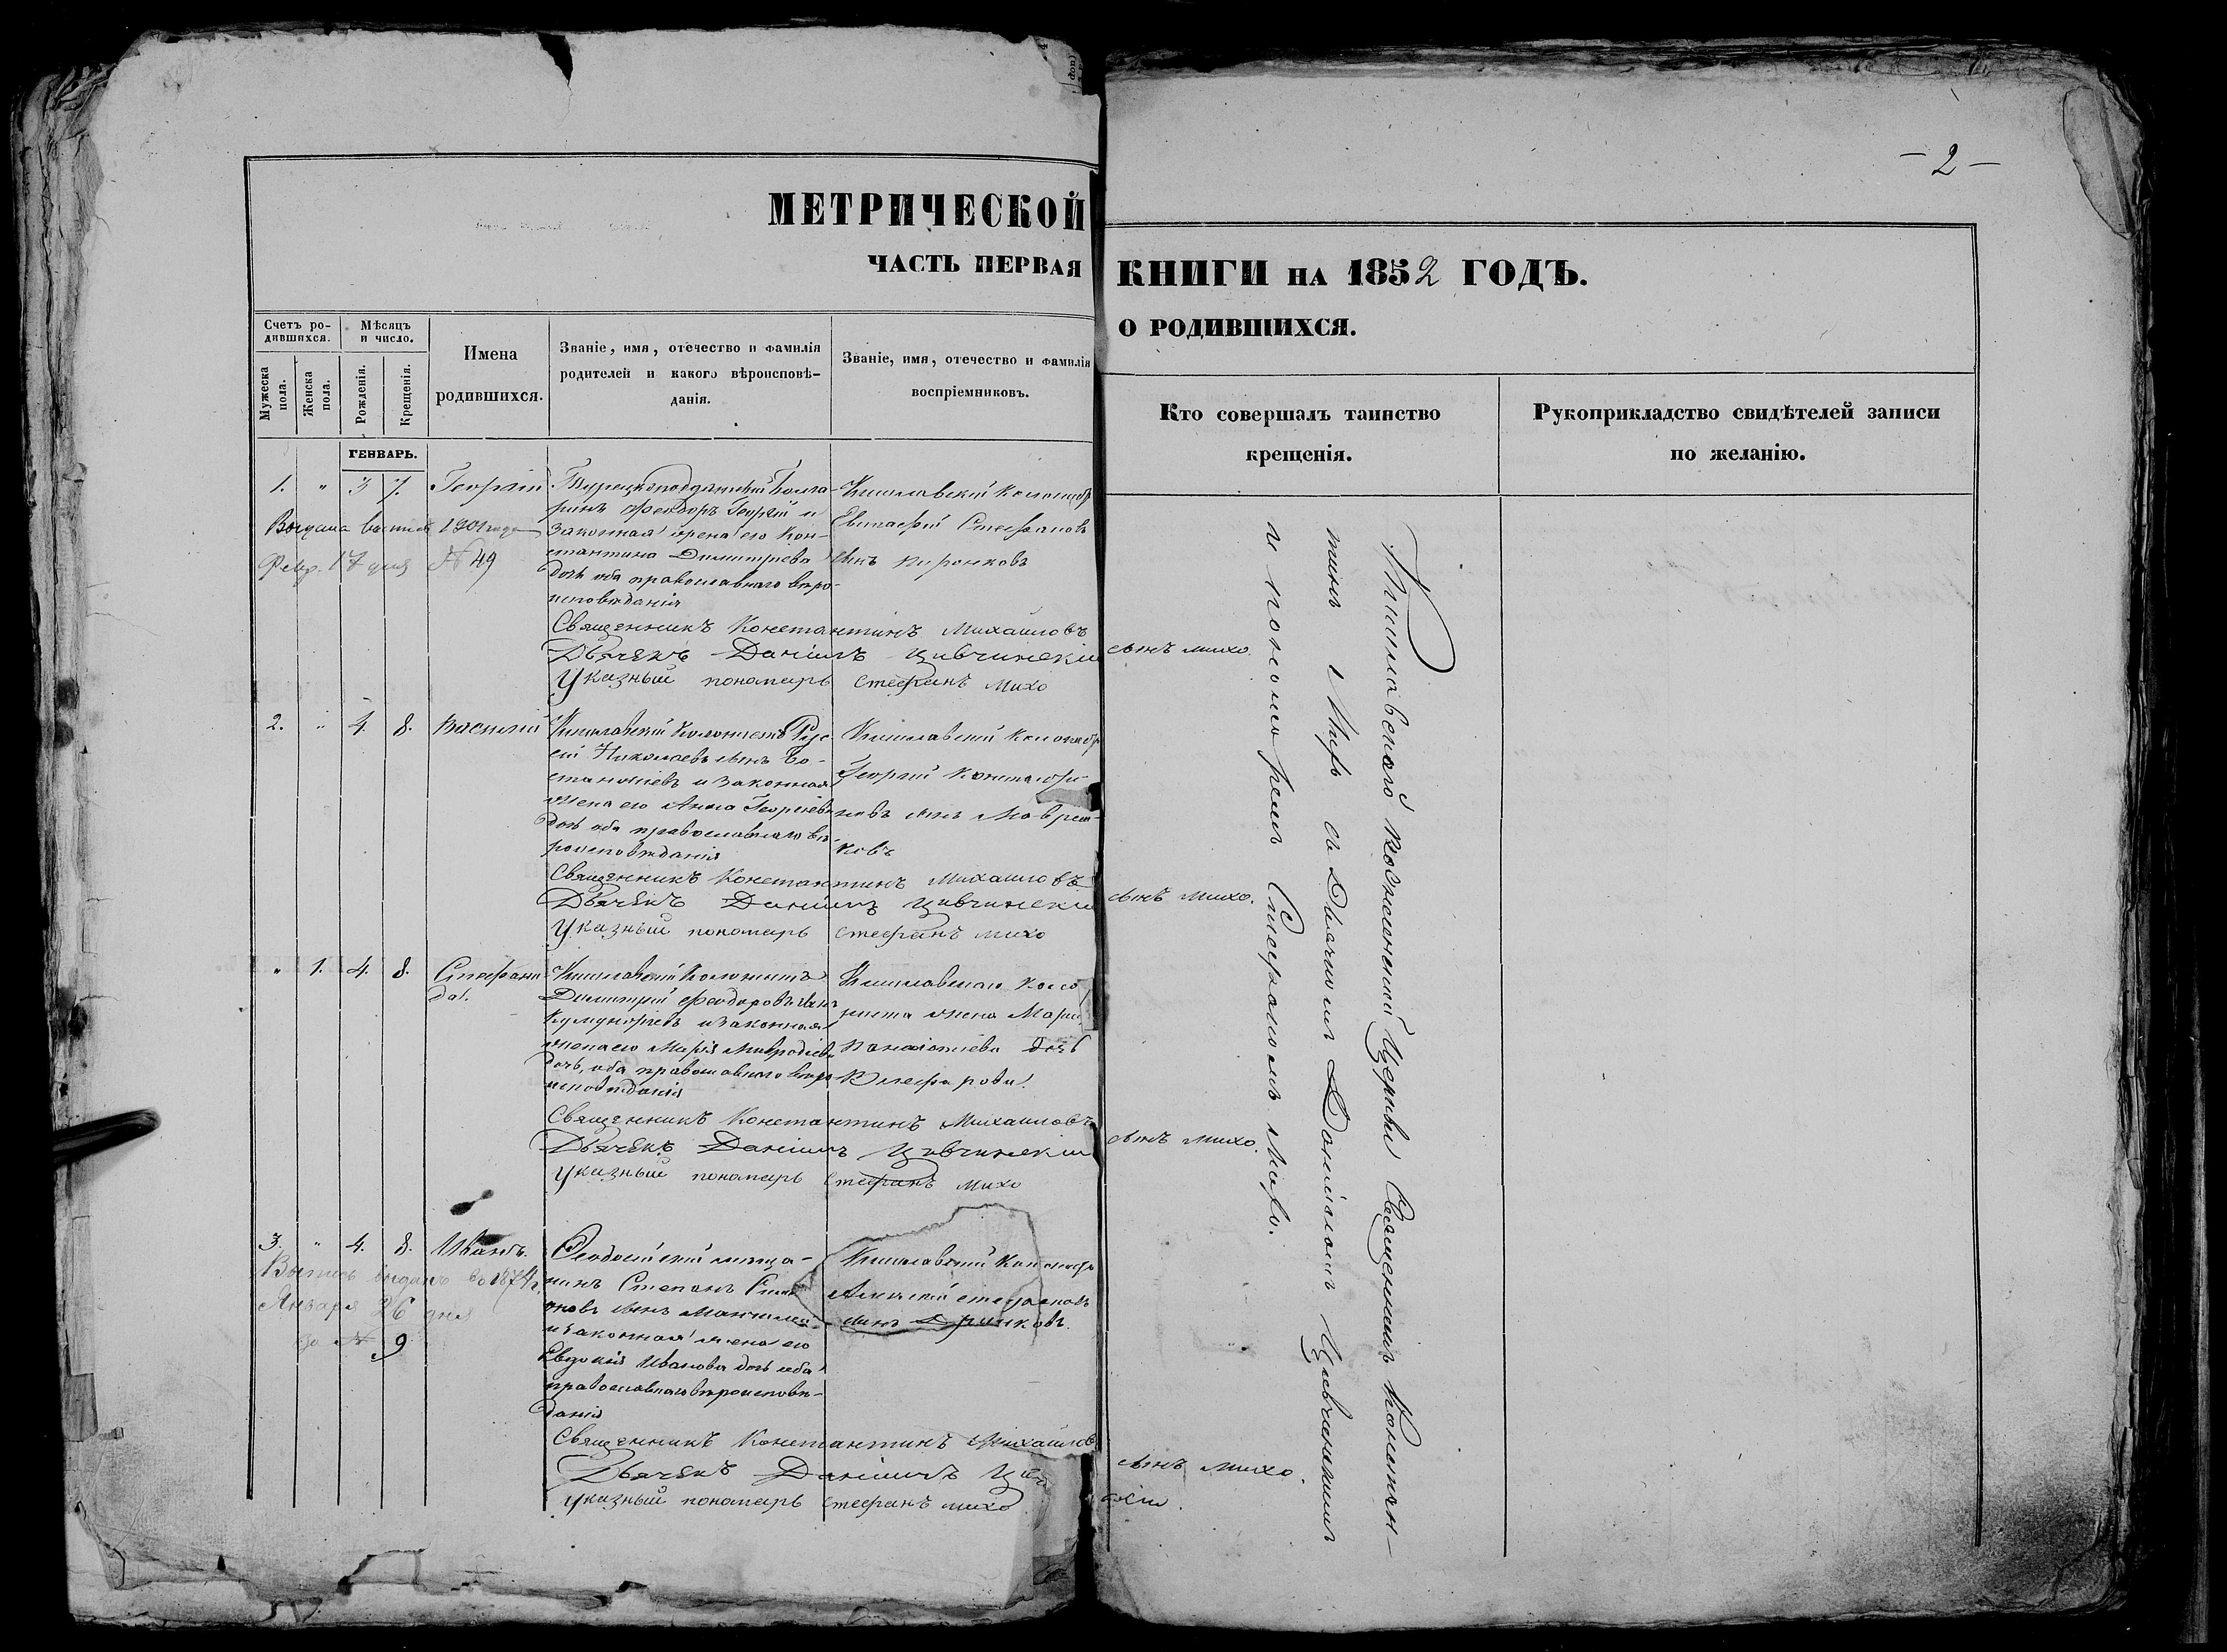 — 2 —
МЕТРИЧЕСКОЙ
КНИГИ НА 1852 ГОДЪ.
ЧАСТЬ ПЕРВАЯ
О РОДИВШИХСЯ.
Счетъ ро-
дившихся.
Мужеска пола.
Женска пола.
Мѣсяцъ
и число.
Рожденія.
Крещенія.
Имена
родившихся.
Званіе, имя, отечество и фамилія
родителей и какого вѣроисповѣ-
данія.
Званіе, имя, отечество и фамилія
воспріемниковъ.
Кто совершалъ таинство
крещенія.
Рукоприкладство свидѣтелей записи
по желанію.
ГЕНВАРЬ.
1. " 3 7. Георгій
Турецкоподданный Болга-
ринъ Феодоръ Георгій и
законная жена его Кон-
стантина Димитріева
дочь оба православнаго вѣро-
исповѣданія
Кишлавскій колонистъ
Евстафій Стефановъ
сынъ
Выдана выпись 1901 года
Февр. 17 дня № 49
Священникъ Константинъ Михаиловъ
сынъ михо.
Дьячекъ Даніилъ Цивчинскій
Указный пономарь Стефанъ михо
2. " 4. 8. Василій
Кишлавскій Колонистъ
Николаевъ сынъ
и законная
жена его Анна Георгіева
дочь оба православнаго вѣ-
роисповѣданія
Кишлавскій колонистъ
Георгій Константи-
новъ сынъ
ковъ
Священникъ Константинъ Михаиловъ
сынъ михо.
Дьячекъ Даніилъ Цивчинскій
Указный пономарь Стефанъ михо
" 1. 4. 8. Стефани
да.
Кишлавскій Колонистъ
Димитрій Феодоровъ сынъ
и законная
жена его Марія
дочь, оба православнаго вѣро-
исповѣданія
Кишлавскаго коло
ниста жена Марія
Панаіотова дочь
Священникъ Константинъ Михаиловъ
сынъ михо.
Дьячекъ Даніилъ Цивчинскій
Указный пономарь Стефанъ михо
3. " 4. 8. Иванъ.
Феодосійскій мѣща-
нинъ Степанъ
сынъ
и законная жена его
Евдокія Иванова дочь оба
православнаго вѣроисповѣ-
данія
Кишлавскій колонистъ
Алексій Стефановъ
сынъ
Выпись выдана въ 1874 г.
Января 26 дня
за № 9
Священникъ Константинъ Михаиловъ
сынъ михо.
Дьячекъ Даніилъ
Указный пономарь Стефанъ михо
Кишлавской Церкви Священникъ Констан-
тинъ Михо съ Дьячкомъ Даніиломъ Цивчинскимъ
и пономаремъ Стефаномъ Михо.